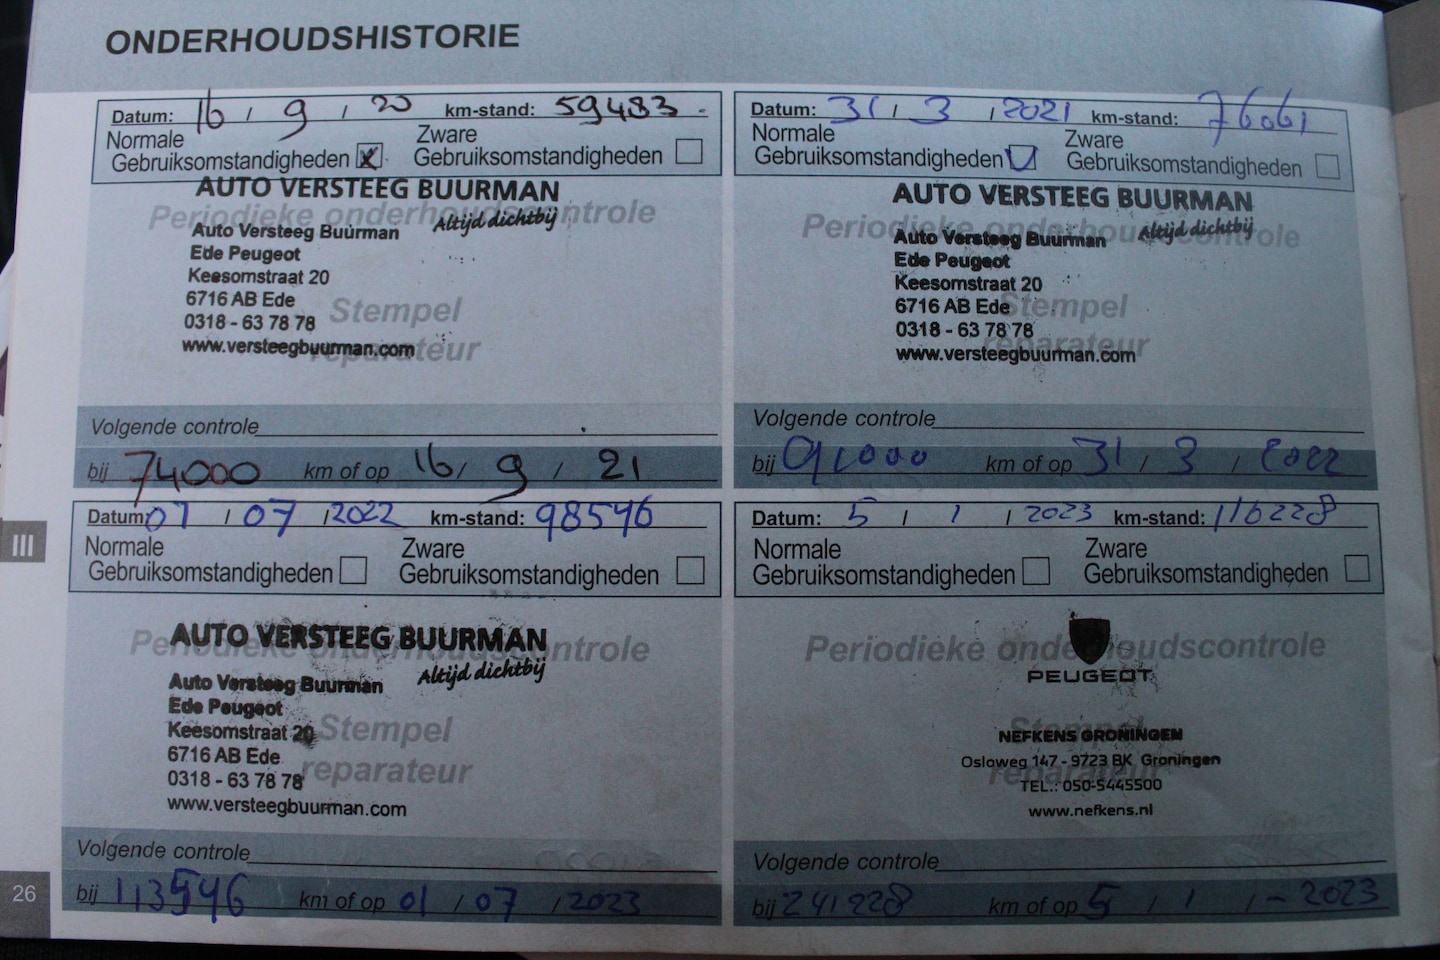 ONDERHOUDSHISTORIE
Datum: 16 / 9 / 20 km-stand: 59483 -
Normale Gebruiksomstandigheden X Zware Gebruiksomstandigheden
AUTO VERSTEEG BUURMAN
Altijd dichtbij
Periodieke onderhoudscontrole
Auto Versteeg Buurman
Ede Peugeot
Keesomstraat 20
6716 AB Ede
0318 - 63 78 78
www.versteegbuurman.com
Stempel
reparateur
Volgende controle
bij 74000 km of op 16 / 9 / 21
Datum: 31 / 3 / 2021 km-stand: 76061
Normale Gebruiksomstandigheden Zware Gebruiksomstandigheden
AUTO VERSTEEG BUURMAN
Altijd dichtbij
Periodieke onderhoudscontrole
Auto Versteeg Buurman
Ede Peugeot
Keesomstraat 20
6716 AB Ede
0318 - 63 78 78
www.versteegbuurman.com
Stempel
reparateur
Volgende controle
bij 91000 km of op 31 / 3 / 2022
III
Datum: 07 / 07 / 2022 km-stand: 98546
Normale Gebruiksomstandigheden Zware Gebruiksomstandigheden
AUTO VERSTEEG BUURMAN
Altijd dichtbij
Periodieke onderhoudscontrole
Auto Versteeg Buurman
Ede Peugeot
Keesomstraat 20
6716 AB Ede
0318 - 63 78 78
www.versteegbuurman.com
Stempel
reparateur
Volgende controle
bij 113546 km of op 01 / 07 / 2023
Datum: 5 / 1 / 2023 km-stand: 116228
Normale Gebruiksomstandigheden Zware Gebruiksomstandigheden
Periodieke onderhoudscontrole
PEUGEOT
Stempel
reparateur
NEFKENS GRONINGEN
Osloweg 147 - 9723 BK Groningen
TEL.: 050-5445500
www.nefkens.nl
Volgende controle
bij 241228 km of op 5 / 1 / - 2023
26